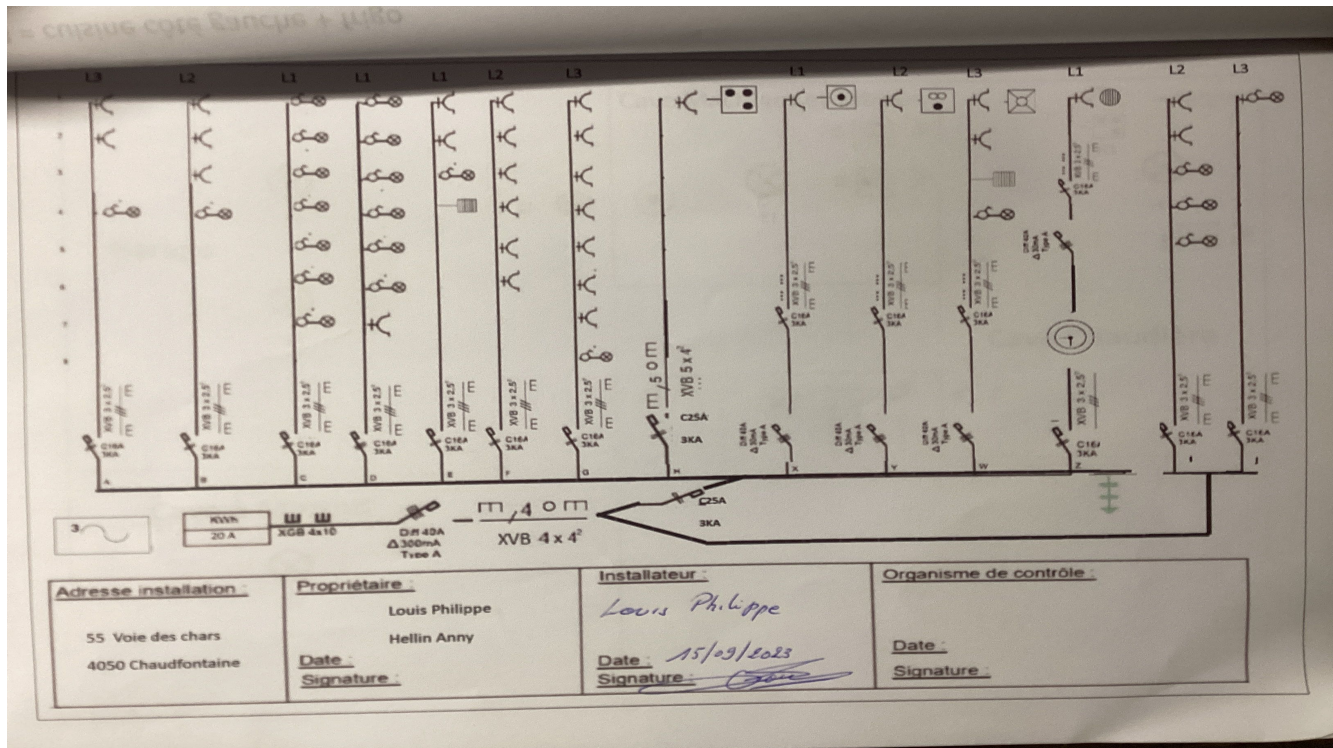 = cuisine côté gauche + frigo
L3 L2 L1 L1 L1 L2 L3 L1 L2 L3 L1 L2 L3
2
3
4
5
6
7
8
XVB 3 x 2,5² E E
C16A
3KA
A
XVB 3 x 2,5² E E
C16A
3KA
B
XVB 3 x 2,5² E E
C16A
3KA
C
XVB 3 x 2,5² E E
C16A
3KA
D
XVB 3 x 2,5² E E
C16A
3KA
E
XVB 3 x 2,5² E E
C16A
3KA
F
XVB 3 x 2,5² E E
C16A
3KA
G
XVB 5 x 4²
C25A
3KA
H
XVB 3 x 2,5² E E
C16A
3KA
Diff 40A
Δ 30mA
Type A
X
XVB 3 x 2,5² E E
C16A
3KA
Diff 40A
Δ 30mA
Type A
Y
XVB 3 x 2,5² E E
C16A
3KA
Diff 40A
Δ 30mA
Type A
W
XVB 3 x 2,5² E E
C16A
3KA
Diff 40A
Δ 30mA
Type A
XVB 3 x 2,5²
C16A
3KA
Z
XVB 3 x 2,5² E E
C16A
3KA
I
XVB 3 x 2,5² E E
C16A
3KA
J
C25A
3KA
3
KWh
20 A
XGB 4x10
Diff 40A
Δ 300mA
Type A
XVB 4 x 4²
Adresse installation :
55 Voie des chars
4050 Chaudfontaine
Propriétaire :
Louis Philippe
Hellin Anny
Date :
Signature :
Installateur :
Louis Philippe
Date : 15/09/2023
Signature :
Organisme de contrôle :
Date :
Signature :